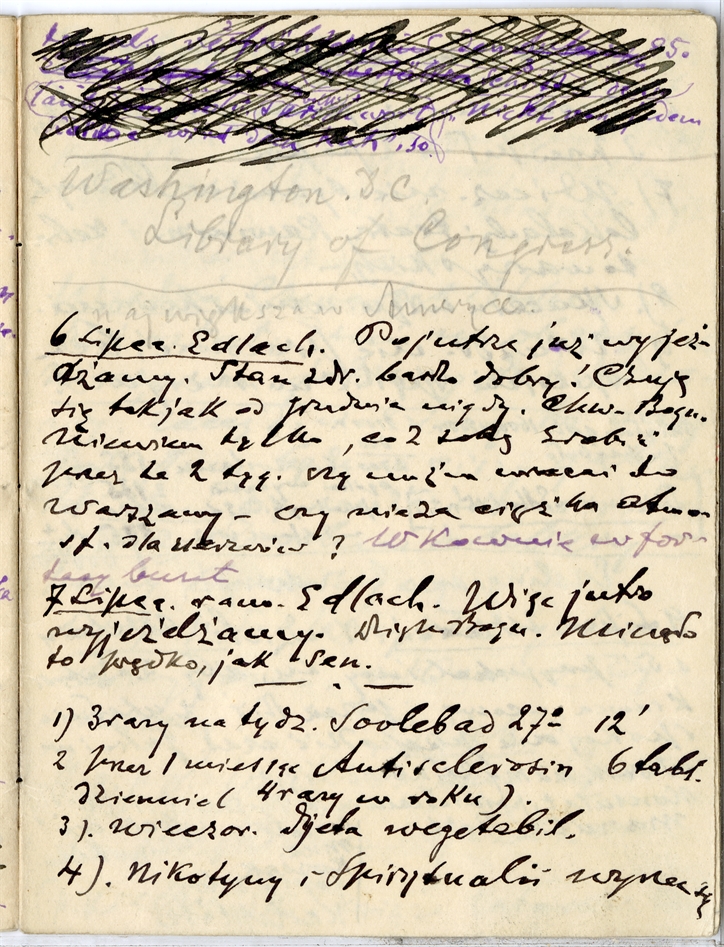 85.
"Nicht von jedem
", 50.
Washington. D.C.
Library of Congress.
największa w Ameryce.
6 Lipca. Edlach. Pojutrze już wyjeż-
dżamy. Stan zdr. bardo dobry! Czuję
się tak jak od grudnia nigdy. Chw. Bogu.
Niewiem tylko, co z sobą zrobić
przez te 2 tyg. czy można wracać do
Warszawy – czy nieza ciężka atmo-
sf. dla nerwów? W Kownie w for-
tecy bunt
7 Lipca. rano. Edlach. Więc jutro
wyjeżdżamy. Dzięki Bogu. Minęło
to prędko, jak sen.
1) 3 razy na tydz. Soolebad 27° 12'
2 przez 1 miesiąc Antisclerosin 6 tabl.
dziennie ( 4 razy w roku ).
3). wieczor. Djeta wegetabil.
4). Nikotyny i Spirytualii